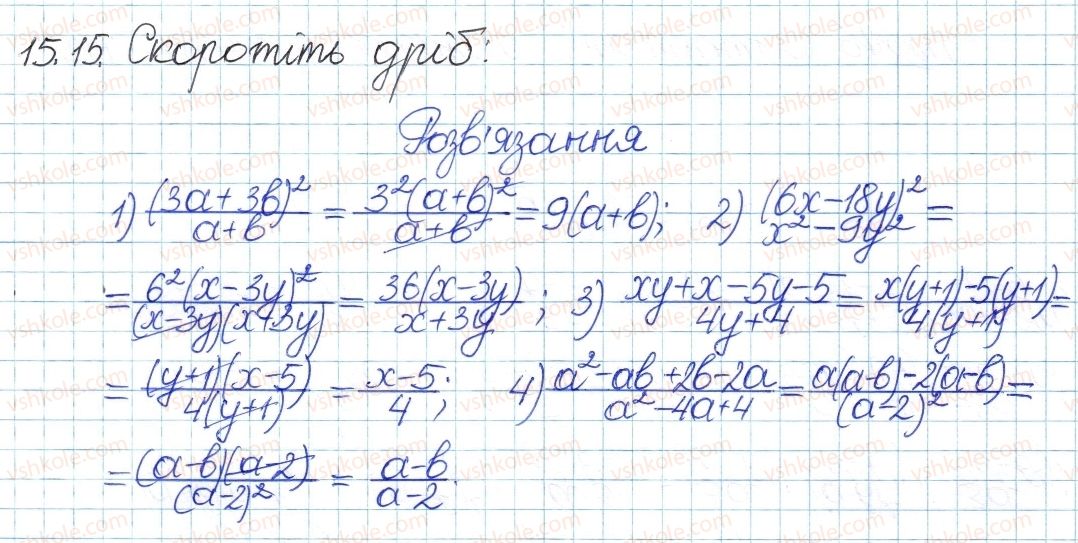 15.15. Скоротіть дріб:
Розв'язання
1) (3a+3b)²/(a+b) = 3²(a+b)²/(a+b) = 9(a+b); 2) (6x-18y)²/(x²-9y²) =
= 6²(x-3y)²/((x-3y)(x+3y)) = 36(x-3y)/(x+3y); 3) (xy+x-5y-5)/(4y+4) = (x(y+1)-5(y+1))/(4(y+1)) =
= (y+1)(x-5)/(4(y+1)) = (x-5)/4; 4) (a²-ab+2b-2a)/(a²-4a+4) = (a(a-b)-2(a-b))/(a-2)² =
= (a-b)(a-2)/(a-2)² = (a-b)/(a-2).
vshkole.com